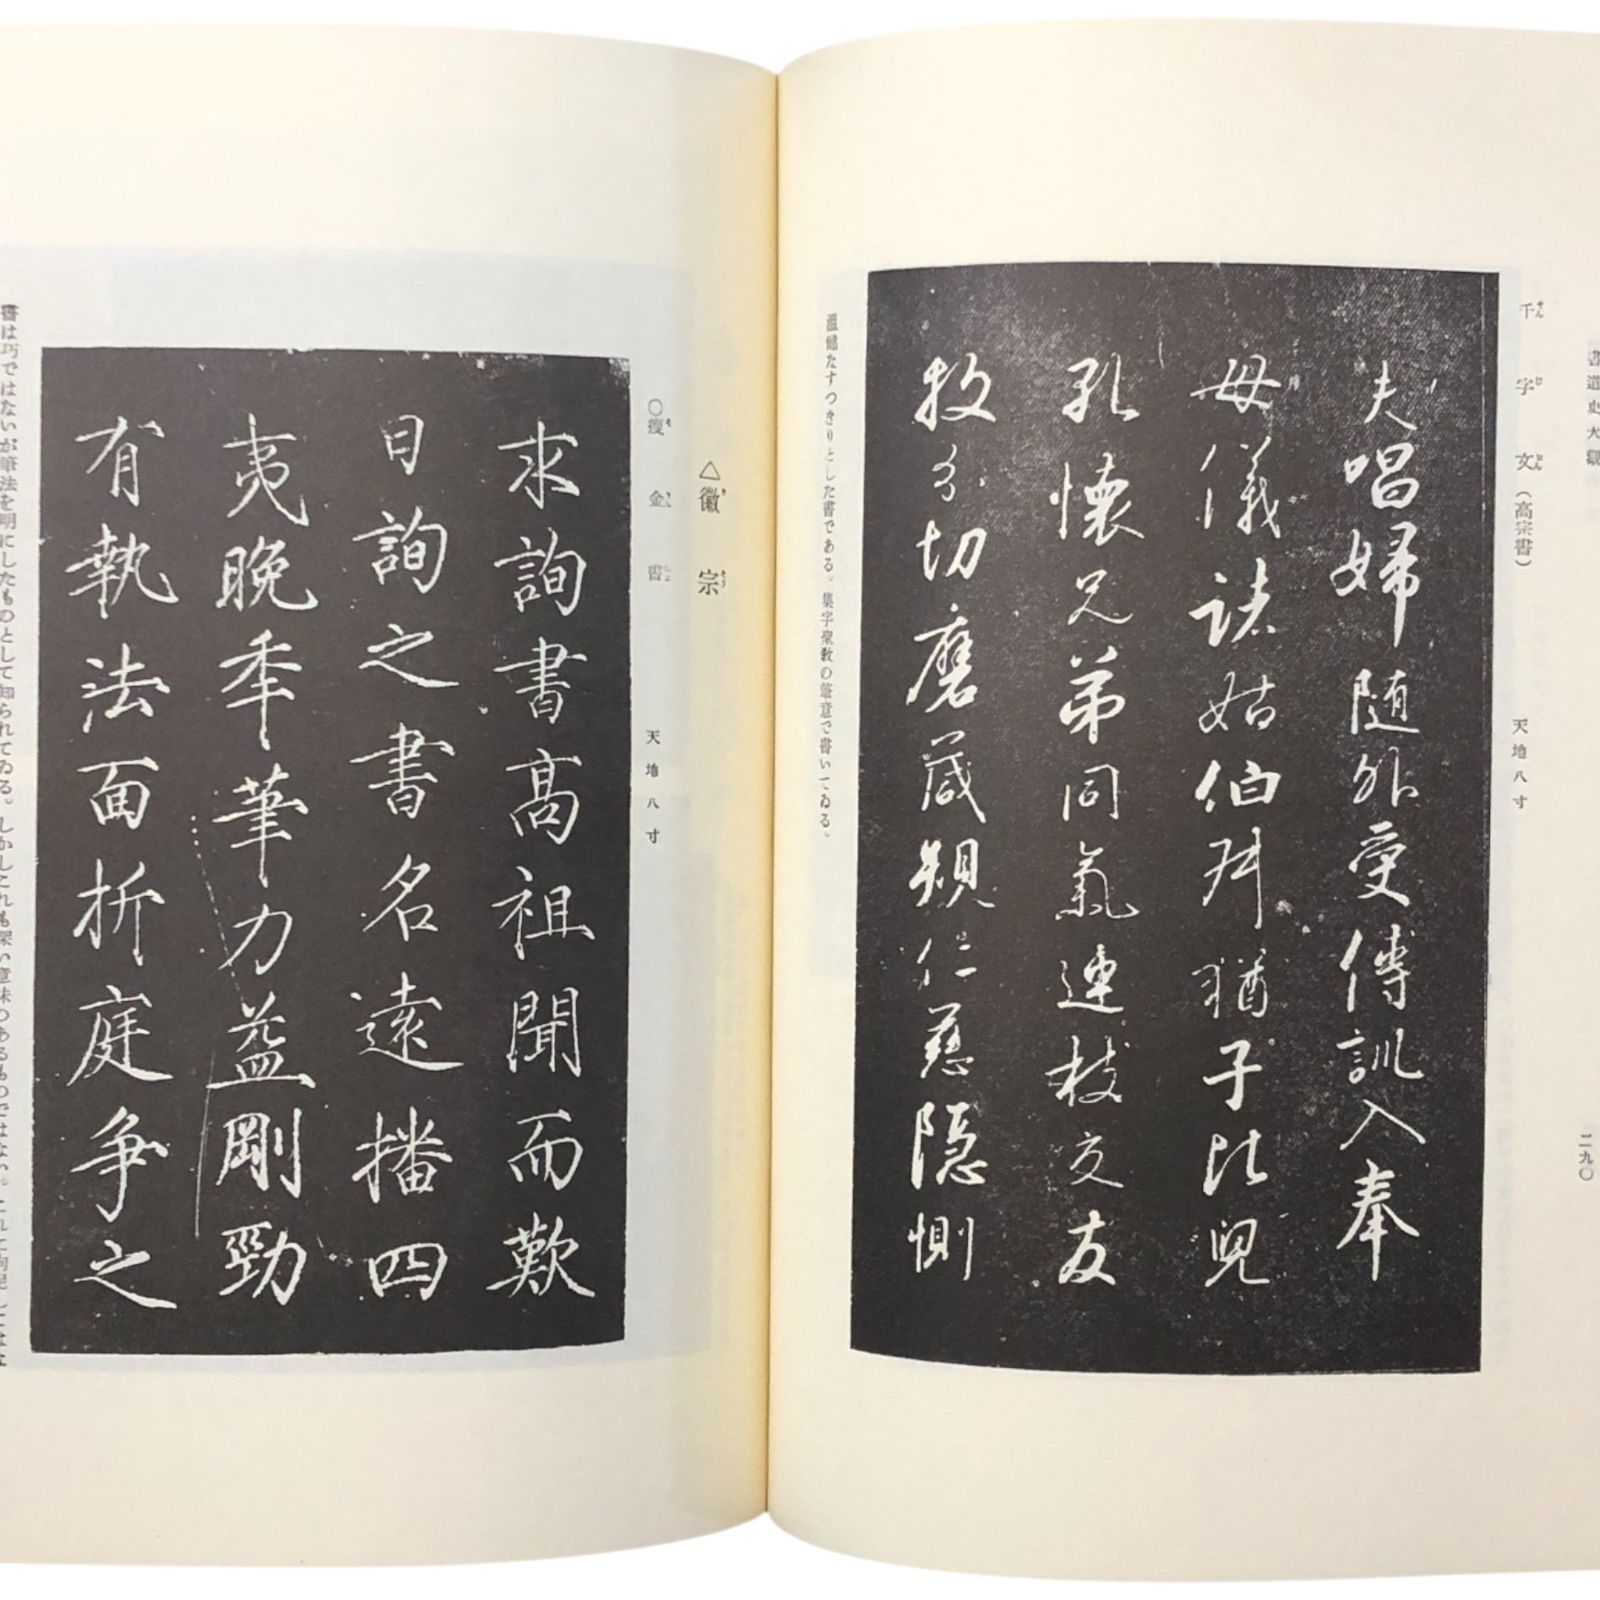 書道史大観
二九〇
千字文(高宗書)
天地八寸
夫唱婦随外受傅訓入奉
母儀諸姑伯叔猶子比兒
孔懷兄弟同氣連枝交友
投分切磨箴規仁慈隠惻
たすつきりとした書である。集字聖教の筆意で書いてゐる。
△徽宗
〇痩金書
天地八寸
求詢書高祖聞而歎
日詢之書名遠播四
夷晩年筆力益剛勁
有執法面折庭爭之
書は巧ではないが筆法を明にしたものとして知られてゐる。しかしこれも深い意味のあるものではない。